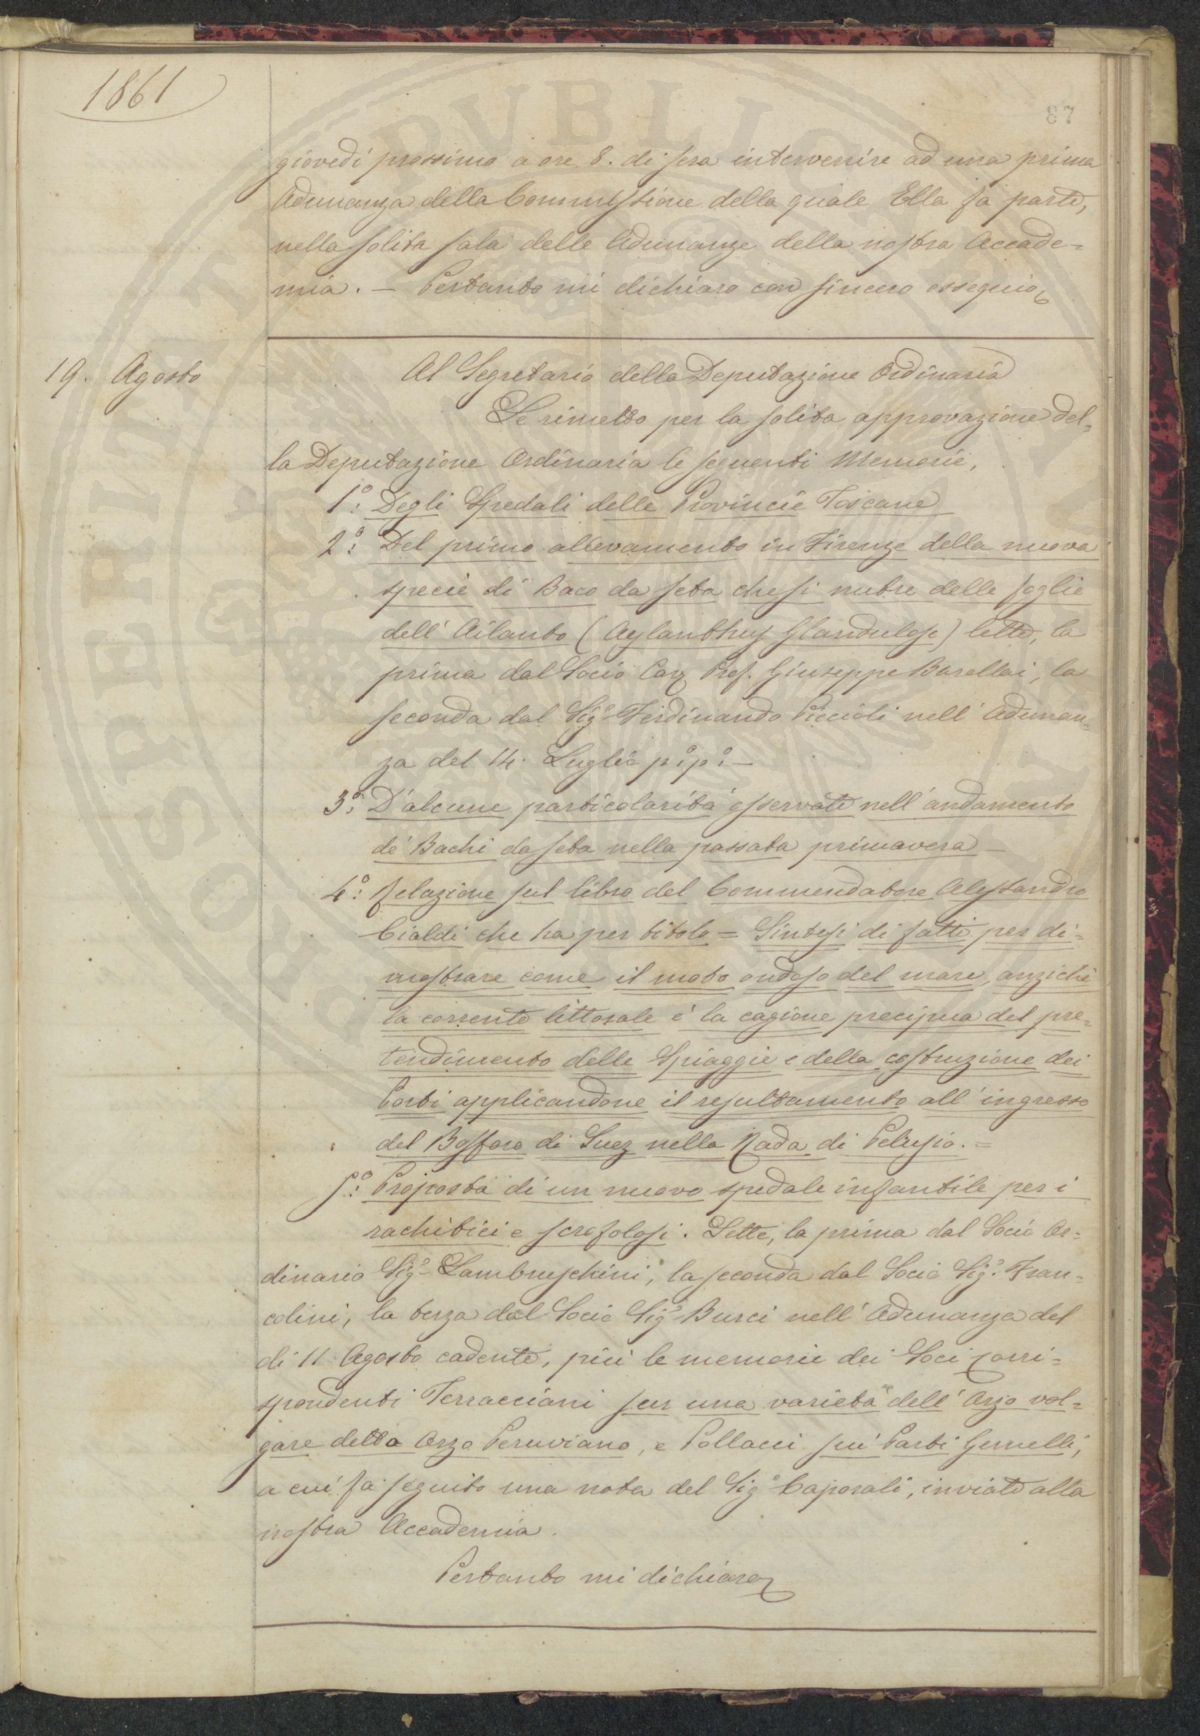 1861
87
giovedì prossimo a ore 8. di sera intervenire ad una prima
Adunanza della Commissione della quale Ella fa parte,
nella solita sala delle Adunanze della nostra Accade=
mia. — Pertanto mi dichiaro con sincero ossequio
19. Agosto
Al Segretario della Deputazione Ordinaria
Le rimetto per la solita approvazione del=
la Deputazione Ordinaria le seguenti Memorie,
1º: Degli Spedali delle Provincie Toscane
2º: Del primo allevamento in Firenze della nuova
specie di Baco da seta che si nutre delle foglie
dell'Ailanto (Aylanthus Glandulosa) lette, la
prima dal Socio Cav. Prof. Giuseppe Barellai, la
seconda dal Sigº Ferdinando Piccioli nell'Adunan=
za del 14. Luglio pº.pº. —
3º: D'alcune particolarità osservate nell'andamento
de' Bachi da seta nella passata primavera —
4º: Relazione sul libro del Commendatore Alessandro
Cialdi che ha per titolo = Sintesi di fatti per di=
mostrare come il moto ondoso del mare, anziché
la corrente littorale è la cagione precipua del pro=
tendimento delle Spiaggie e della costruzione dei
Porti applicandone il resultamento all'ingresso
del Bosforo di Suez nella Rada di Pelusio. =
5º: Proposta di un nuovo spedale infantile per i
rachitici e scrofolosi. Lette, la prima dal Socio Or=
dinario Sigº Lambruschini, la seconda dal Socio Sigº. Fran=
colini, la terza dal Socio Sigº Burci nell'Adunanza del
dì 11 Agosto cadente, più le memorie dei Soci Corri=
spondenti Terracciani su una varietà dell'Orzo vol=
gare detto Orzo Peruviano, e Pollacci sui Parti Gemelli,
a cui fa seguito una nota del Sigº Caporali, inviate alla
nostra Accademia.
Pertanto mi dichiaro
SPERINATE
PVBLICA